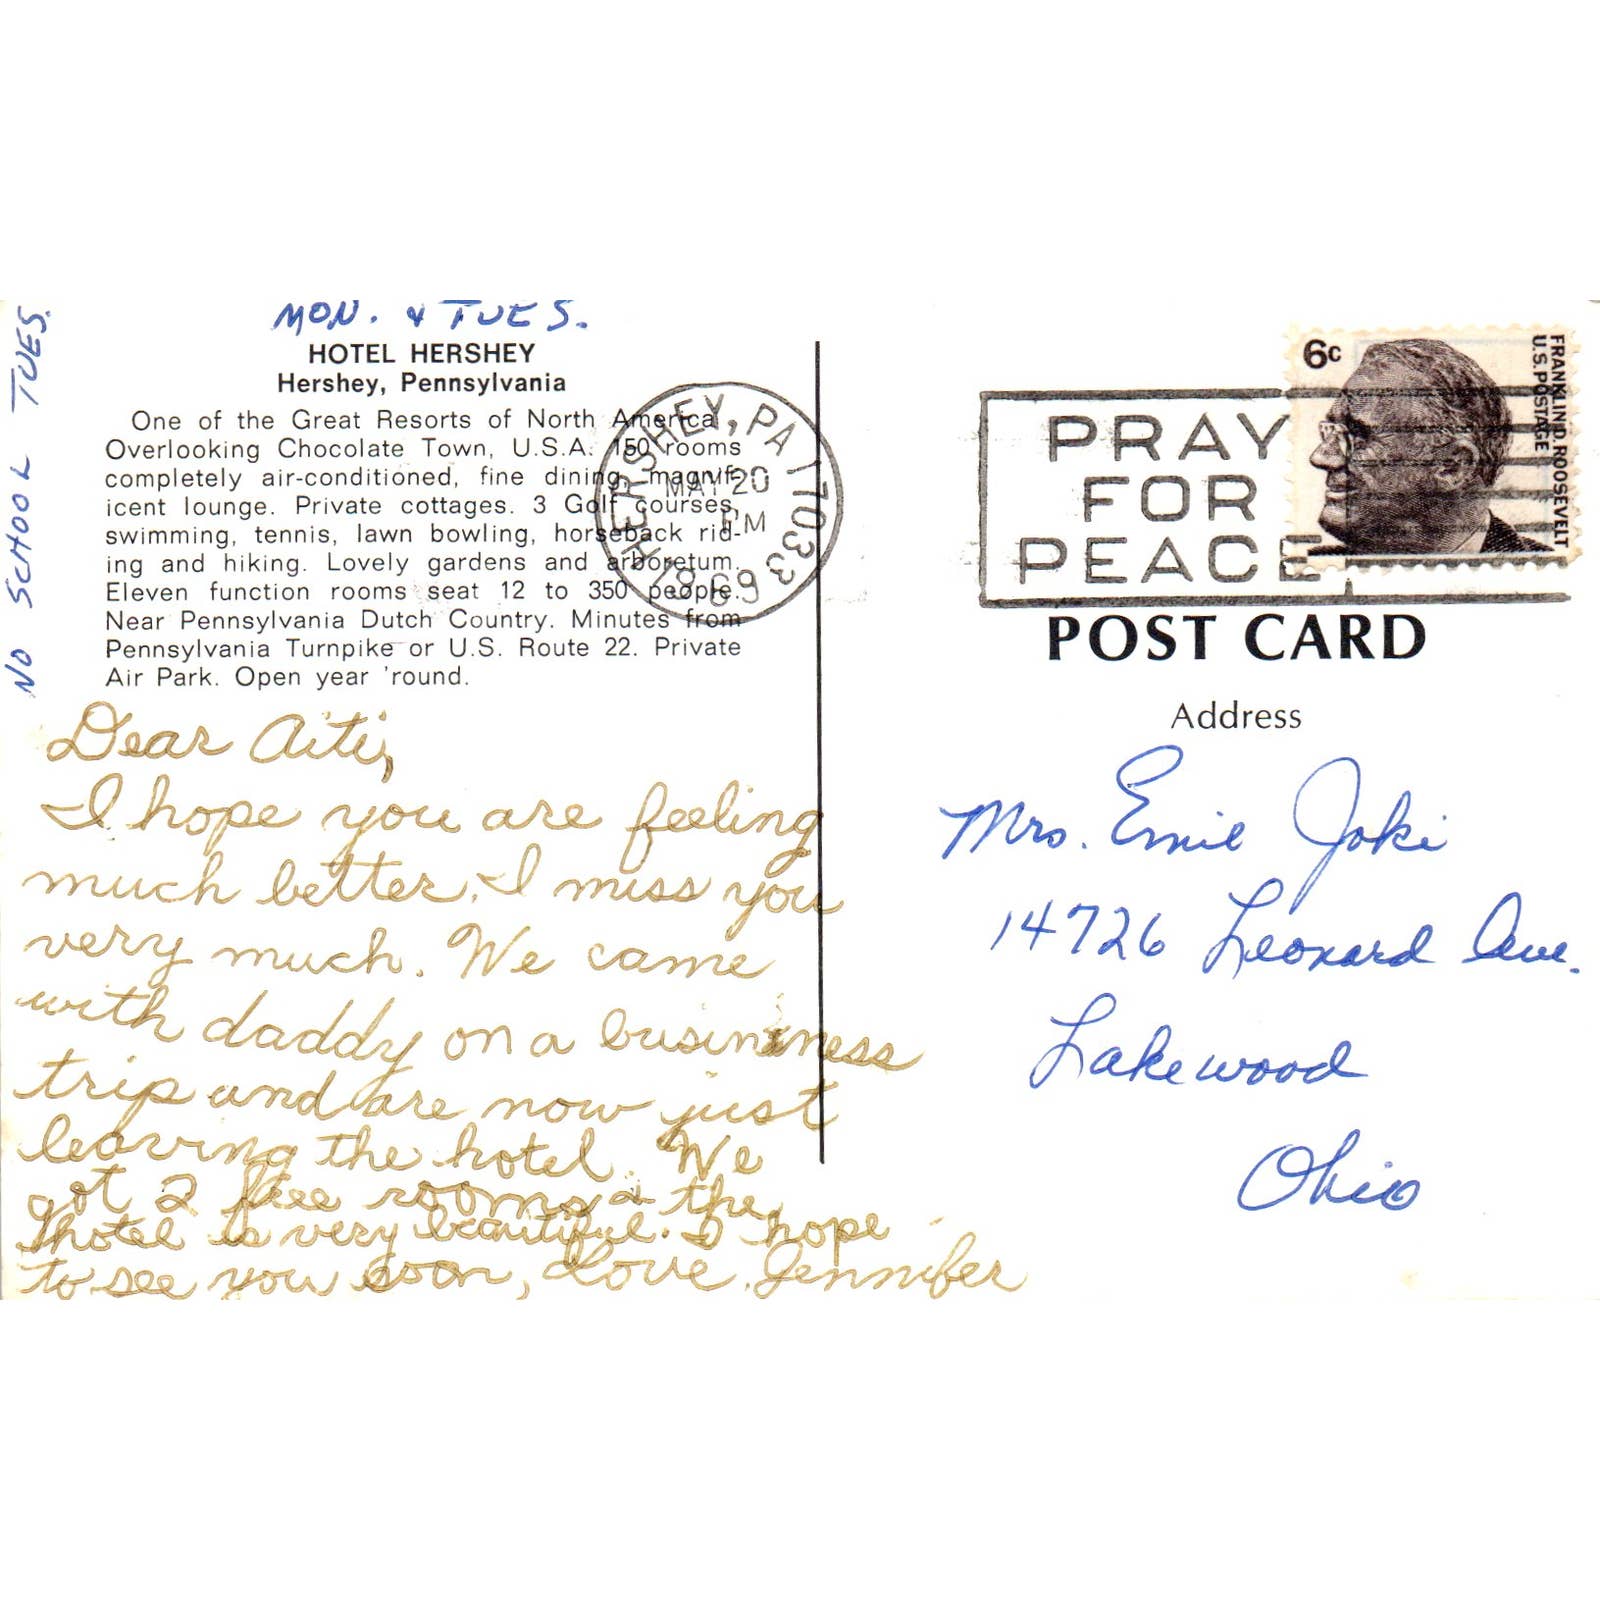 MON. & TUES.
NO SCHOOL TUES.
HOTEL HERSHEY
Hershey, Pennsylvania
One of the Great Resorts of North America
Overlooking Chocolate Town, U.S.A. 150 rooms
completely air-conditioned, fine dining, magnif-
icent lounge. Private cottages. 3 Golf courses,
swimming, tennis, lawn bowling, horseback rid-
ing and hiking. Lovely gardens and arboretum.
Eleven function rooms seat 12 to 350 people.
Near Pennsylvania Dutch Country. Minutes from
Pennsylvania Turnpike or U.S. Route 22. Private
Air Park. Open year 'round.
Dear Aiti,
I hope you are feeling
much better. I miss you
very much. We came
with daddy on a business
trip and are now just
leaving the hotel. We
got 2 free rooms & the
hotel is very beautiful. I hope
to see you soon, Love, Jennifer
HERSHEY, PA 17033
MAY 20
PM
1969
PRAY
FOR
PEACE
6c
FRANKLIN D. ROOSEVELT
U.S. POSTAGE
POST CARD
Address
Mrs. Emil Joki
14726 Leonard Ave.
Lakewood
Ohio